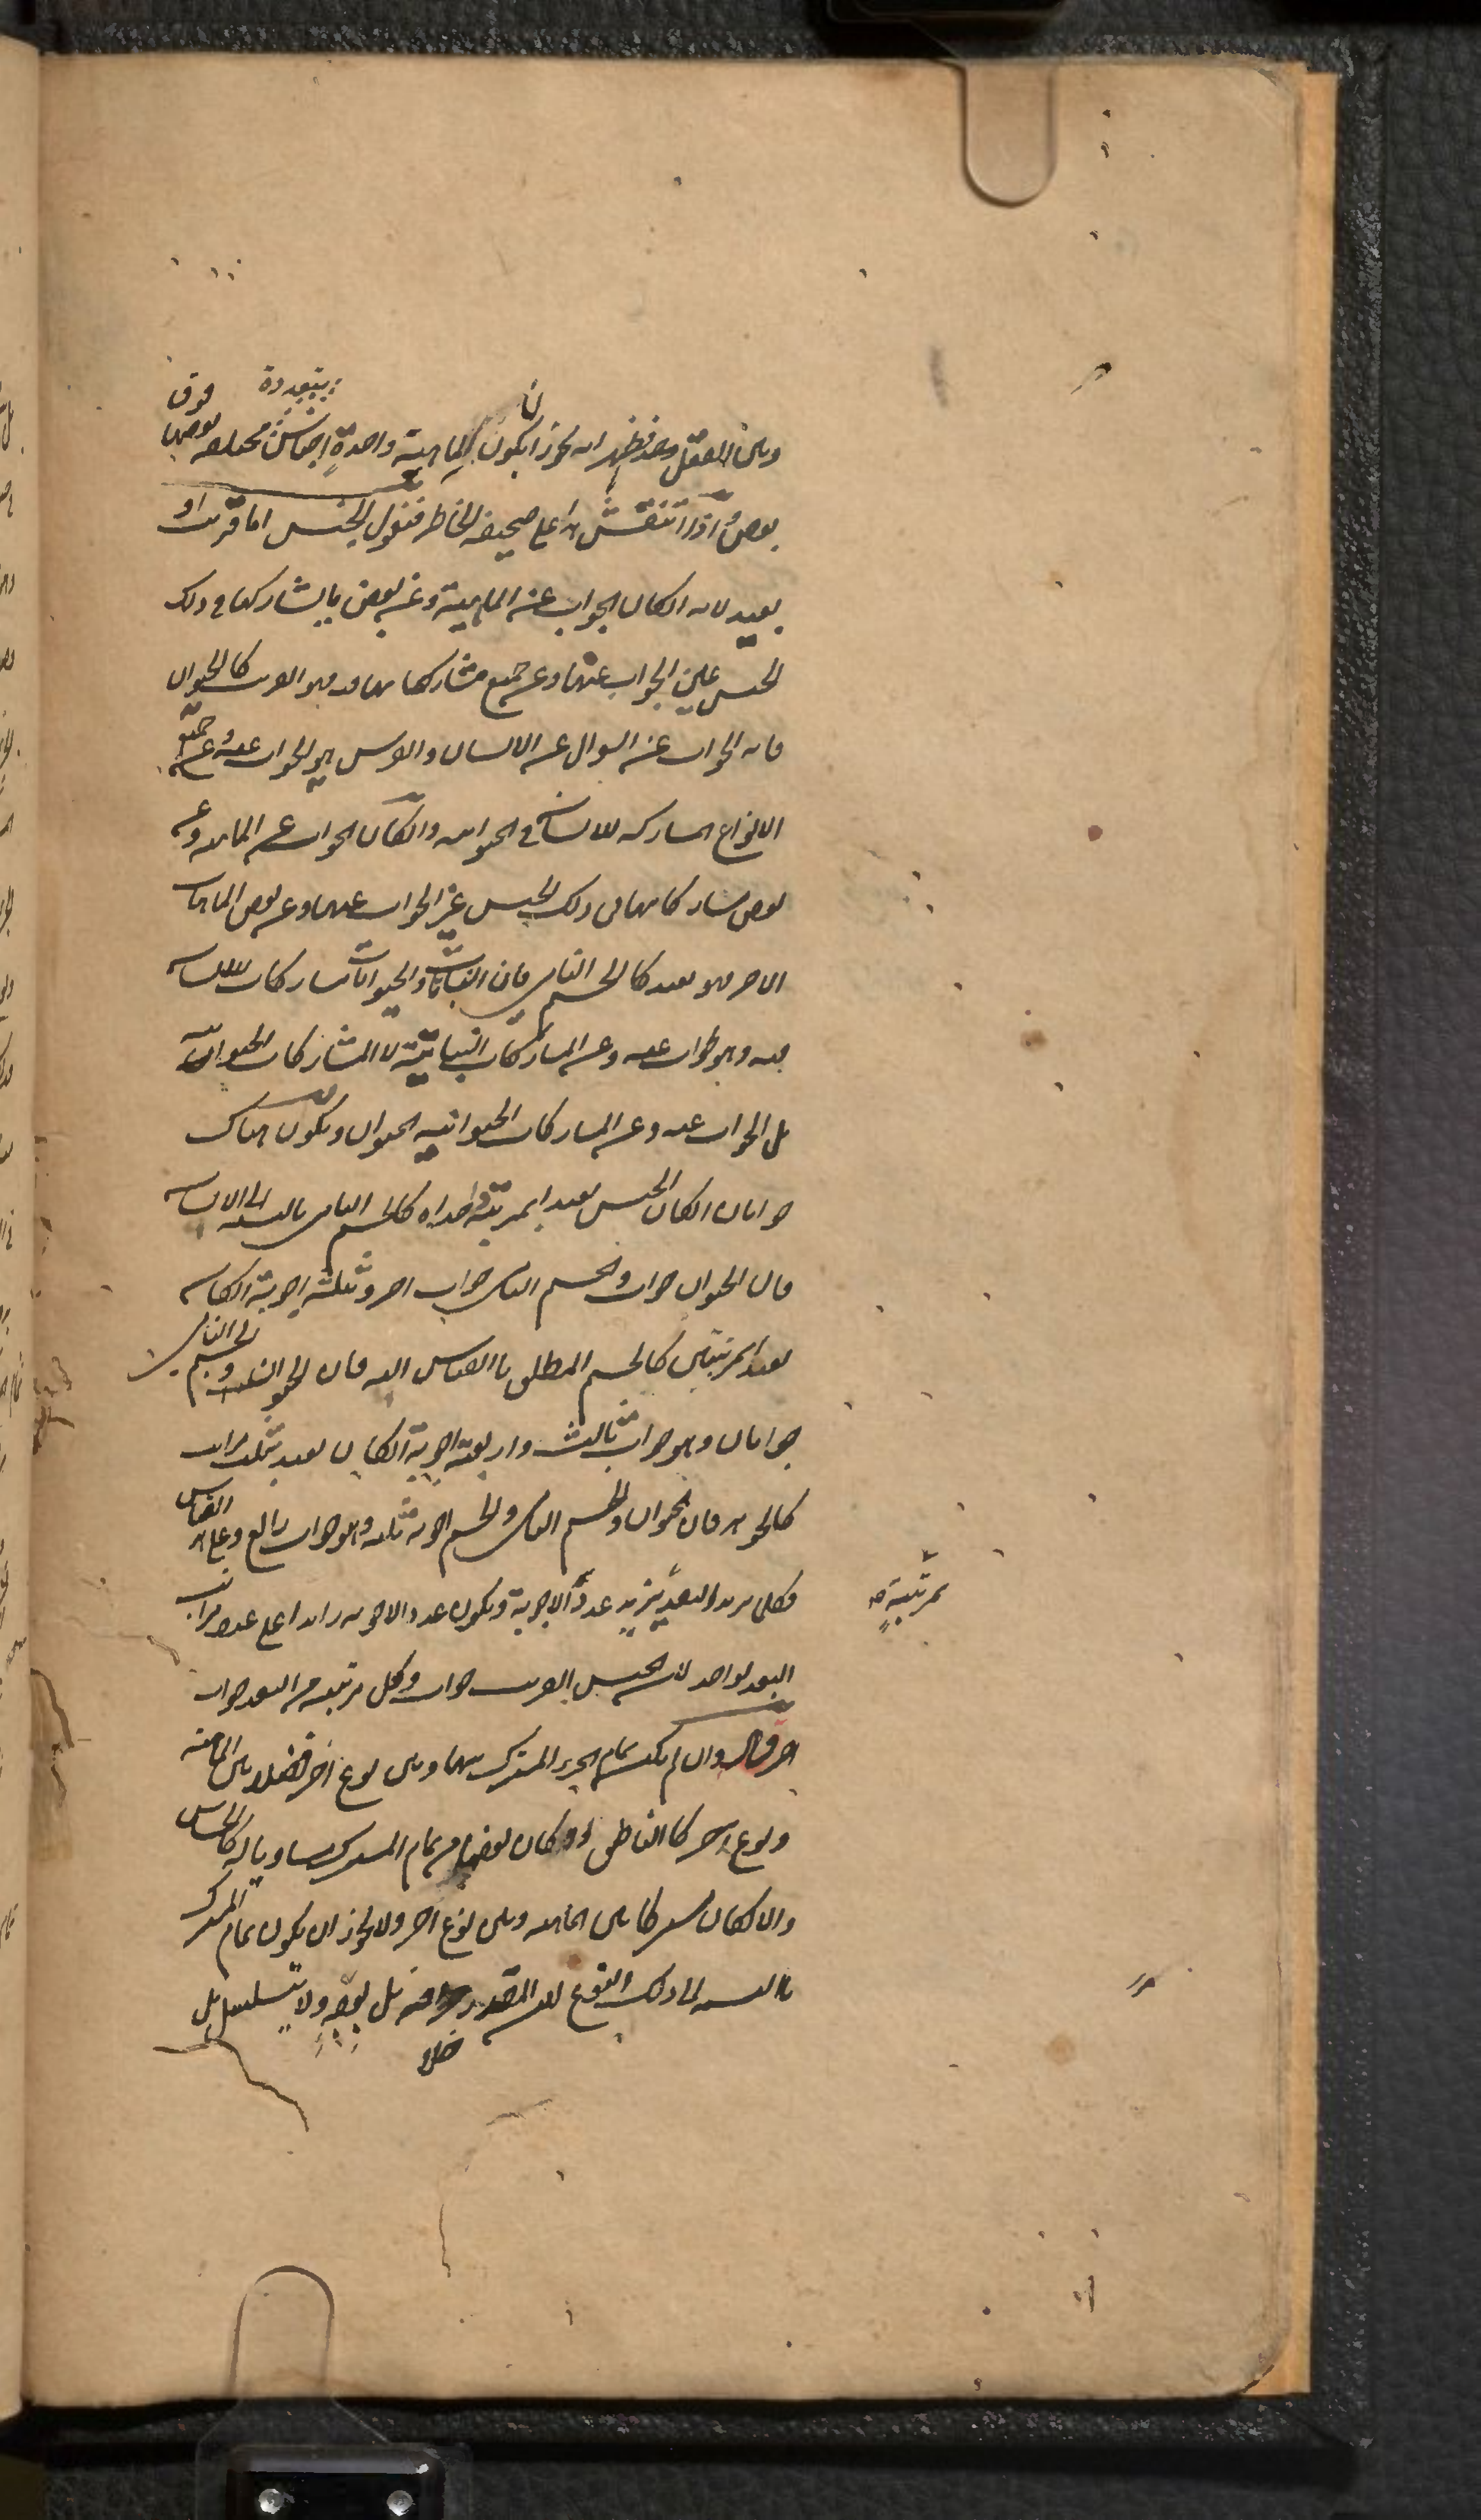 متعددة
وبين العقل وقد ظهر انه يجوز ان يكون لماهية واحدة اجناس مختلفة بعضها فوق
بعض واذا انتقش هذا على صحيفة الخاطر فنقول الجنس اما قريب او
بعيد لانه ان كان الجواب عن الماهية وعن بعض ما يشاركها في ذلك
الجنس عين الجواب عنها وعن جميع مشاركاتها فيه فهو القريب كالحيوان
فانه الجواب عن السوال عن الانسان والفرس وهو الجواب عنه وعن جميع
الانواع المشاركة للانسان في الحيوانية وان كان الجواب عن الماهية وعن
بعض مشاركاتها في ذلك الجنس غير الجواب عنها وعن بعض الماهيات
الاخر فهو بعيد كالجسم النامي فان النباتات والحيوانات تشارك الانسان
فيه وهو الجواب عنه وعن المشاركات النباتية لا المشاركات الحيوانية
بل الجواب عنه وعن المشاركات الحيوانية الحيوان ويكون هناك
جوابان ان كان الجنس بعيدا بمرتبة واحدة كالجسم النامي بالنسبة الى الانسان
فان الحيوان جواب والجسم النامي جواب اخر وثلثة اجوبة ان كان
بعيدا بمرتبتين كالجسم المطلق بالقياس اليه فان الحيوان والجسم النامي
جوابان وهو جواب ثالث واربعة اجوبة ان كان بعيدا بثلث مراتب
كالجوهر فان الحيوان والجسم النامي والجسم اجوبة ثلثة وهو جواب رابع وعلى هذا القياس
فكلما يزيد البعد يزيد عدد الاجوبة ويكون عدد الاجوبة زائدا على عدد مراتب
بمرتبةٍ
البعد بواحد لان الجنس القريب جواب ولكل مرتبة من البعد جواب
اخر قال وان لم يكن تمام الجزء المشترك بينها وبين نوع اخر فضلا بين الماهية
ونوع اخر كالناطق او كان بعضا من تمام المشترك مساويا له كالحساس
والا لكان مشتركا بين الماهية وبين نوع اخر ولا يجوز ان يكون تمام المشترك
بالنسبة الى ذلك النوع لان المقدر خلافه بل بعضه ولا يتسلسل بل